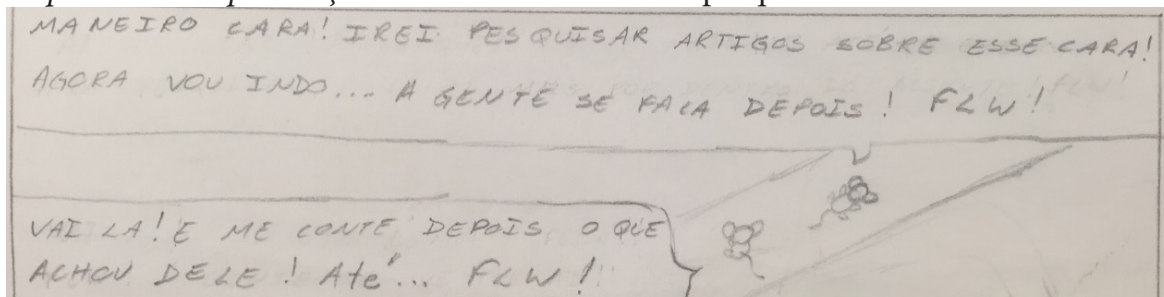 MANEIRO CARA! IREI PESQUISAR ARTIGOS SOBRE ESSE CARA!
AGORA VOU INDO... A GENTE SE FALA DEPOIS! FLW!
VAI LA! E ME CONTE DEPOIS O QUE
ACHOU DELE! Até... FLW!